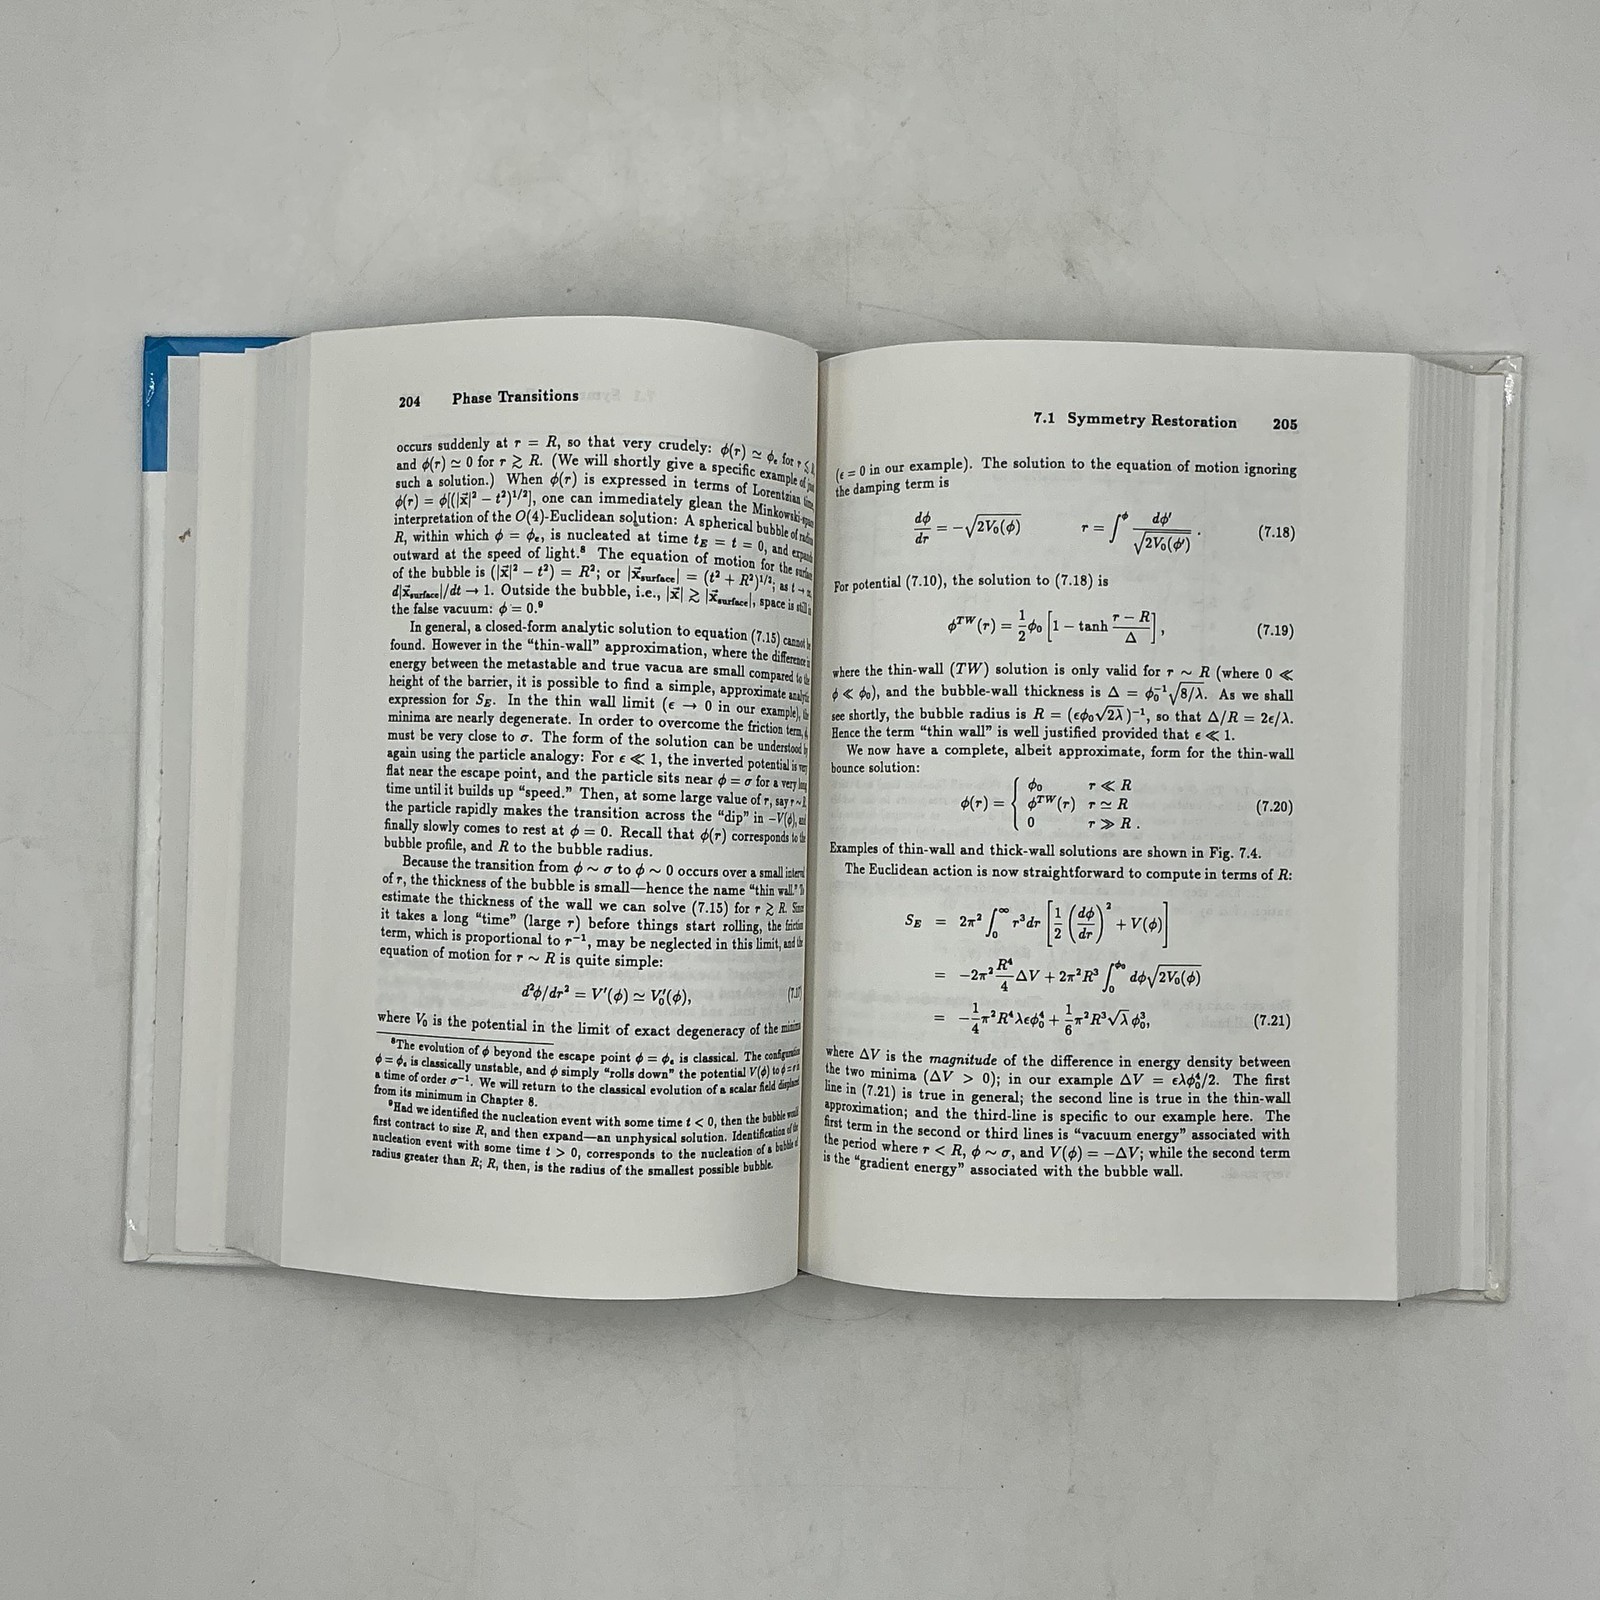 204 Phase Transitions
occurs suddenly at r = R, so that very crudely: ϕ(r) ≃ ϕₑ for r ≲
and ϕ(r) ≃ 0 for r ≳ R. (We will shortly give a specific example of just
such a solution.) When ϕ(r) is expressed in terms of Lorentzian time,
ϕ(r) = ϕ[(|x⃗|² − t²)¹/²], one can immediately glean the Minkowski-space
interpretation of the O(4)-Euclidean solution: A spherical bubble of radius
R, within which ϕ = ϕₑ, is nucleated at time t_E = t = 0, and expands
outward at the speed of light.⁸ The equation of motion for the surface
of the bubble is (|x⃗|² − t²) = R²; or |x⃗_surface| = (t² + R²)¹/²; as t → ∞,
d|x⃗_surface|/dt → 1. Outside the bubble, i.e., |x⃗| ≳ |x⃗_surface|, space is still in
the false vacuum: ϕ = 0.⁹
In general, a closed-form analytic solution to equation (7.15) cannot be
found. However in the “thin-wall” approximation, where the difference in
energy between the metastable and true vacua are small compared to the
height of the barrier, it is possible to find a simple, approximate analytic
expression for S_E. In the thin wall limit (ϵ → 0 in our example), the
minima are nearly degenerate. In order to overcome the friction term,
must be very close to σ. The form of the solution can be understood by
again using the particle analogy: For ϵ ≪ 1, the inverted potential is very
flat near the escape point, and the particle sits near ϕ = σ for a very long
time until it builds up “speed.” Then, at some large value of r, say r ∼ R,
the particle rapidly makes the transition across the “dip” in −V(ϕ), and
finally slowly comes to rest at ϕ = 0. Recall that ϕ(r) corresponds to the
bubble profile, and R to the bubble radius.
Because the transition from ϕ ∼ σ to ϕ ∼ 0 occurs over a small interval
of r, the thickness of the bubble is small—hence the name “thin wall.” To
estimate the thickness of the wall we can solve (7.15) for r ≳ R. Since
it takes a long “time” (large r) before things start rolling, the friction
term, which is proportional to r⁻¹, may be neglected in this limit, and the
equation of motion for r ∼ R is quite simple:
d²ϕ/dr² = V′(ϕ) ≃ V₀′(ϕ), (7.17)
where V₀ is the potential in the limit of exact degeneracy of the minima
⁸The evolution of ϕ beyond the escape point ϕ = ϕₑ is classical. The configuration
ϕ = ϕₑ is classically unstable, and ϕ simply “rolls down” the potential V(ϕ) to ϕ = σ in
a time of order σ⁻¹. We will return to the classical evolution of a scalar field displaced
from its minimum in Chapter 8.
⁹Had we identified the nucleation event with some time t < 0, then the bubble would
first contract to size R, and then expand—an unphysical solution. Identification of the
nucleation event with some time t > 0, corresponds to the nucleation of a bubble of
radius greater than R; R, then, is the radius of the smallest possible bubble.
7.1 Symmetry Restoration 205
(ϵ = 0 in our example). The solution to the equation of motion ignoring
the damping term is
dϕ/dr = −√(2V₀(ϕ)) r = ∫^ϕ dϕ′/√(2V₀(ϕ′)) . (7.18)
For potential (7.10), the solution to (7.18) is
ϕ^TW(r) = ½ϕ₀ [1 − tanh (r − R)/Δ], (7.19)
where the thin-wall (TW) solution is only valid for r ∼ R (where 0 ≪
ϕ ≪ ϕ₀), and the bubble-wall thickness is Δ = ϕ₀⁻¹√(8/λ). As we shall
see shortly, the bubble radius is R = (ϵϕ₀√(2λ))⁻¹, so that Δ/R = 2ϵ/λ.
Hence the term “thin wall” is well justified provided that ϵ ≪ 1.
We now have a complete, albeit approximate, form for the thin-wall
bounce solution:
ϕ(r) = { ϕ₀ r ≪ R
ϕ^TW(r) r ≃ R (7.20)
0 r ≫ R .
Examples of thin-wall and thick-wall solutions are shown in Fig. 7.4.
The Euclidean action is now straightforward to compute in terms of R:
S_E = 2π² ∫₀^∞ r³dr [½ (dϕ/dr)² + V(ϕ)]
= −2π² (R⁴/4) ΔV + 2π²R³ ∫₀^ϕ₀ dϕ√(2V₀(ϕ))
= −¼π²R⁴λϵϕ₀⁴ + ⅙π²R³√λ ϕ₀³, (7.21)
where ΔV is the magnitude of the difference in energy density between
the two minima (ΔV > 0); in our example ΔV = ϵλϕ₀⁴/2. The first
line in (7.21) is true in general; the second line is true in the thin-wall
approximation; and the third-line is specific to our example here. The
first term in the second or third lines is “vacuum energy” associated with
the period where r < R, ϕ ∼ σ, and V(ϕ) = −ΔV; while the second term
is the “gradient energy” associated with the bubble wall.